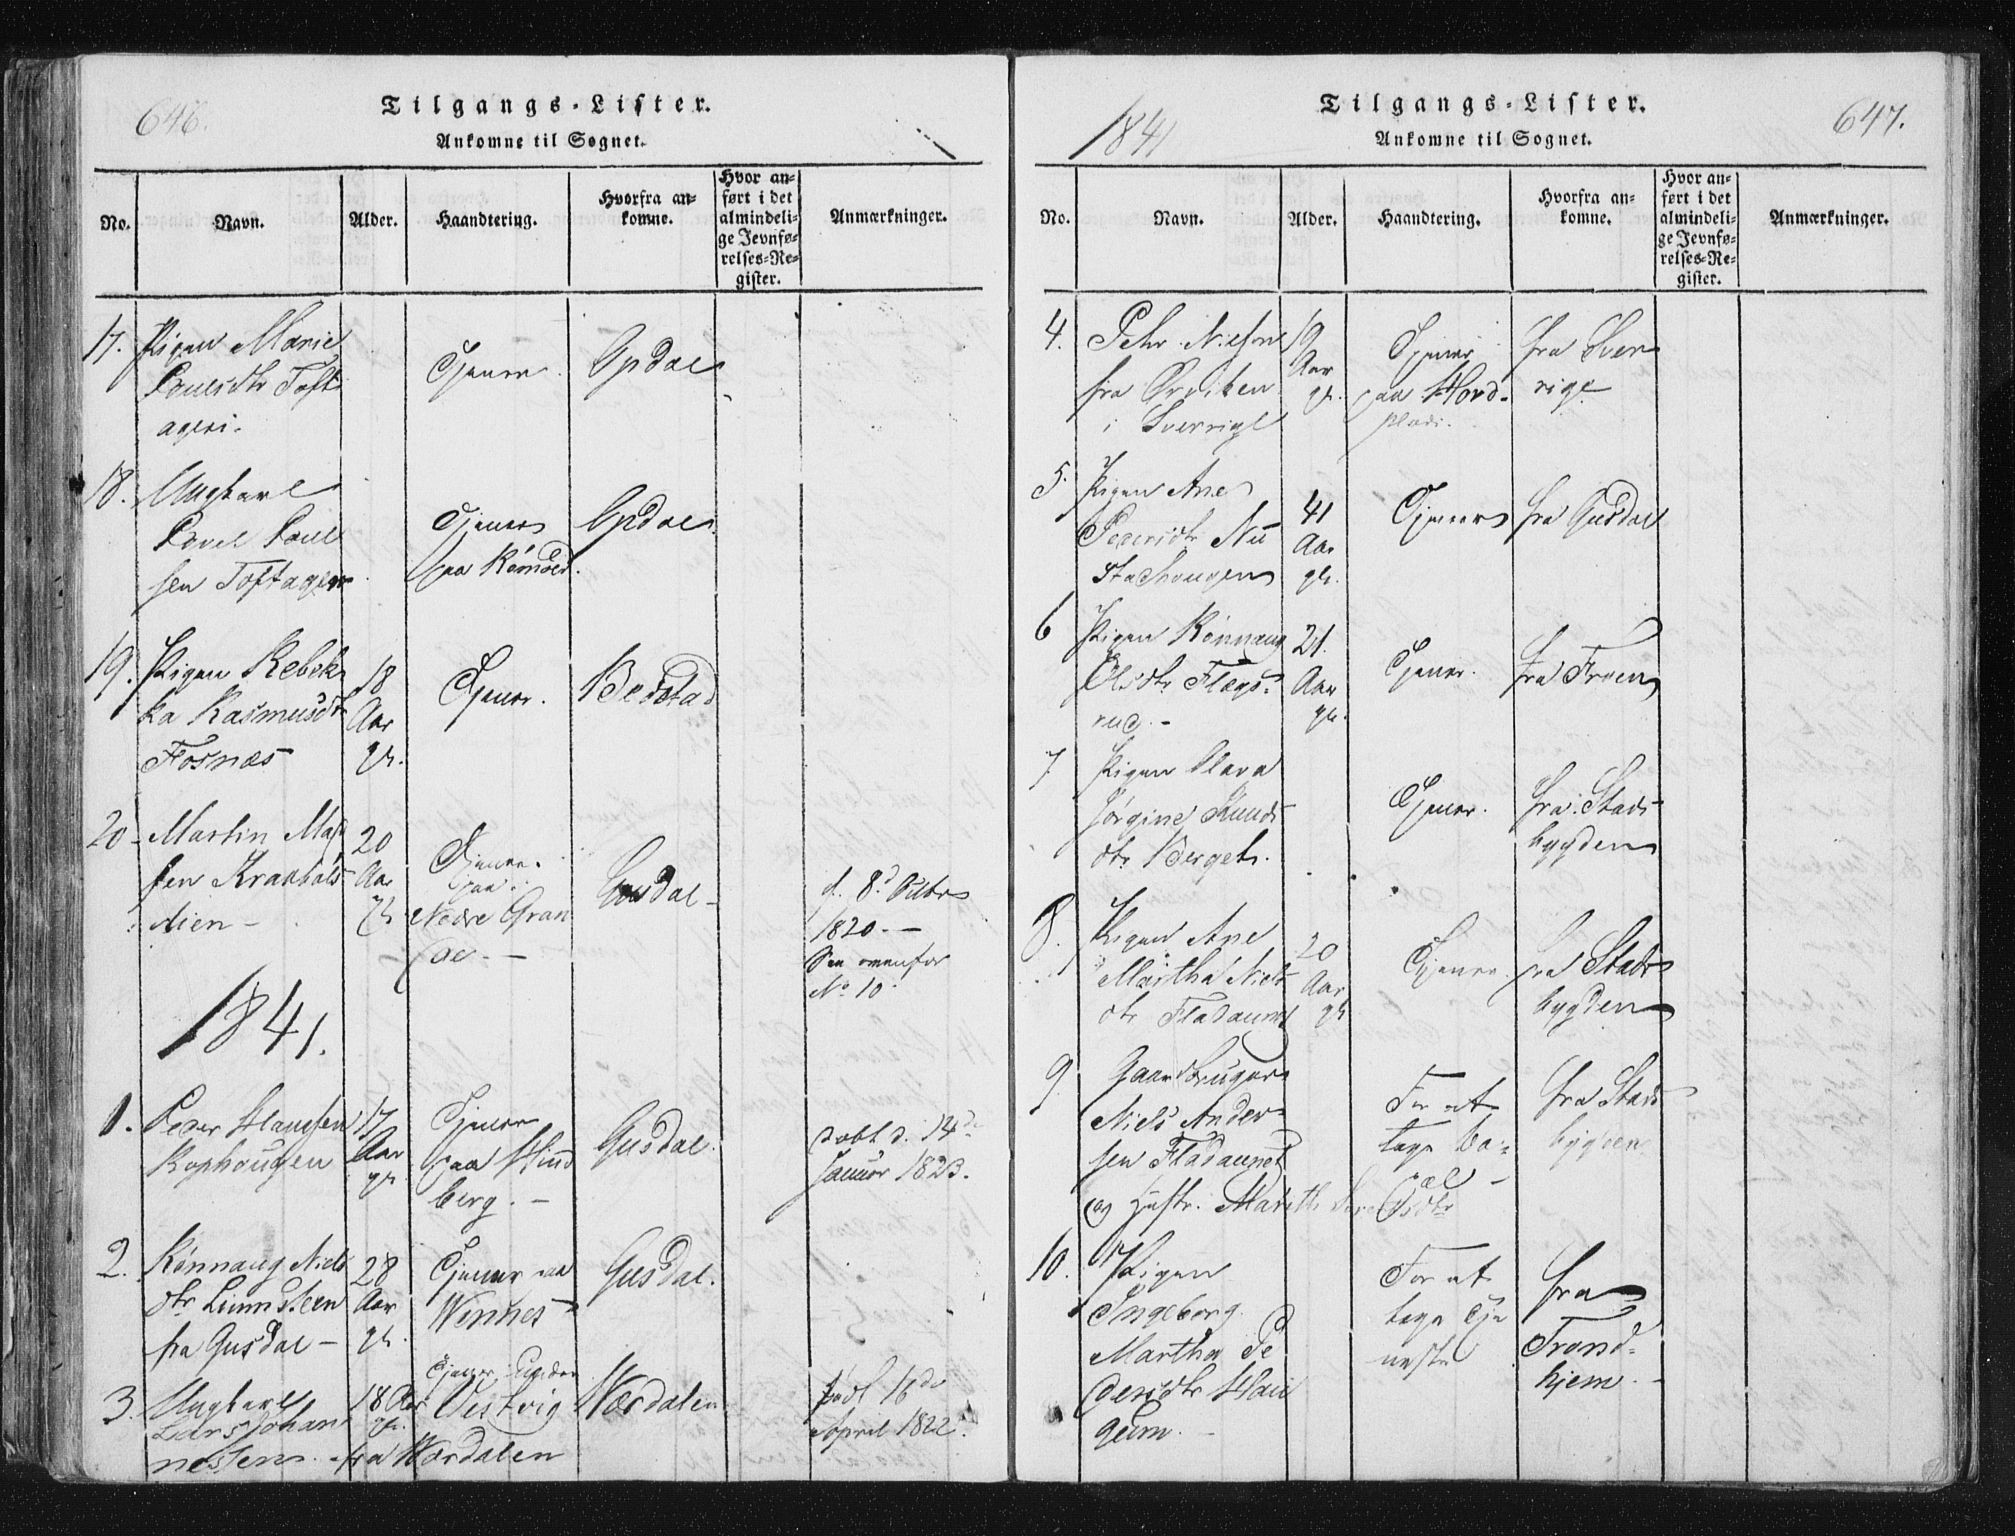 646.
Tilgangs-Lister.
Ankomne til Sognet.
No.
Navn.
Alder.
Haandtering.
Hvorfra an-
komne.
Hvor an-
ført i det
almindeli-
ge Jevnfø-
relses-Re-
gister.
Anmærkninger.
17. Pigen Marie
Tjener. Opdal
18. Ungkarl
Povel Poul
sen Toftager
Tjener
paa
Opdal
19. Pigen Rebek
ka Rasmusdtr
Fosnæs
18
Aar
gl.
Tjener.
20. Martin
sen
20
Aar
gl.
Tjener
paa
Nedre Gran
f. 8d Octbr
1820. -
See ovenfor
No 10
1841.
1. Peder Hansen
Kophougen
17
Aar
gl.
Tjener
paa
berg. -
Gusdal.
døbt d. 14de
Januar 1823.
2. Rønnaug Niels
dtr Linnsteen
fra Gusdal -
28
Aar
gl.
Tjener paa
Vinnes
Gusdal.
3. Ungkarl
Lars Johan
nessen. - fra Værdalen
18 Aar
gl.
Tjener
Vestvig
Værdalen
født 16de
April 1822.
1841
Tilgangs-Lister.
Ankomne til Sognet.
647.
No.
Navn.
Alder.
Haandtering.
Hvorfra an-
komne.
Hvor an-
ført i det
almindeli-
ge Jevnfø-
relses-Re-
gister.
Anmærkninger.
4. Pehr Nielsen
fra
i Sverrige
19
Aar
gl.
Tjener
paa Hord-
plads.
fra Sver
rige
5. Pigen Ane
Pedersdtr
41
Aar
gl.
Tjener
fra Gusdal
6 Pigen Rønnaug
Olsdtr Flægs-
rud. -
21.
Aar
gl.
Tjener.
fra Froen
7 Pigen Olava
Jørgine Knuds
dtr Berget.
Tjener.
fra Stads
bygden
8. Pigen Ane
Martha Niels
dtr Fladaunet
20
Aar
gl
Tjener.
fra Stads
bygden
9 Gaardbruger
Niels Ander-
sen Fladaunet
og Hustr. Mareth
For at
tage Bo-
pæl -
fra Stads
bygden
10. Pigen
Ingeborg
Martha Pe
dersdtr Hau
geim. -
For at
tage Tje
neste
fra
Trond-
hjem. -